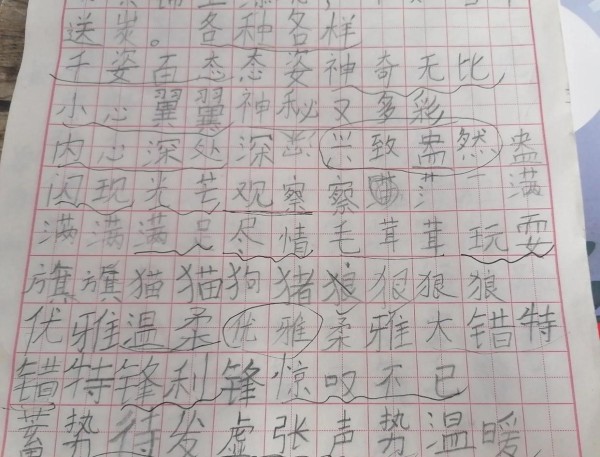 送炭。各种各样
千姿百态态姿神奇无比
小心翼翼神秘又多彩
内心深处深兴致盎然盎
闪现光芒观察察满
满满满足尽情毛茸茸玩耍
旗旗猫猫狗猪狠狠狼
优雅温柔优雅柔雅大错特
错特锋利锋惊叹不已
蓄势待发虚张声势温暖